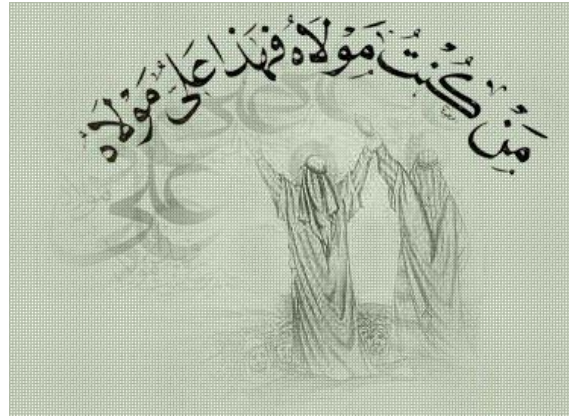 مَنْ كُنْتُ مَوْلَاهُ فَهَذَا عَلِيٌّ مَوْلَاهُ
علی